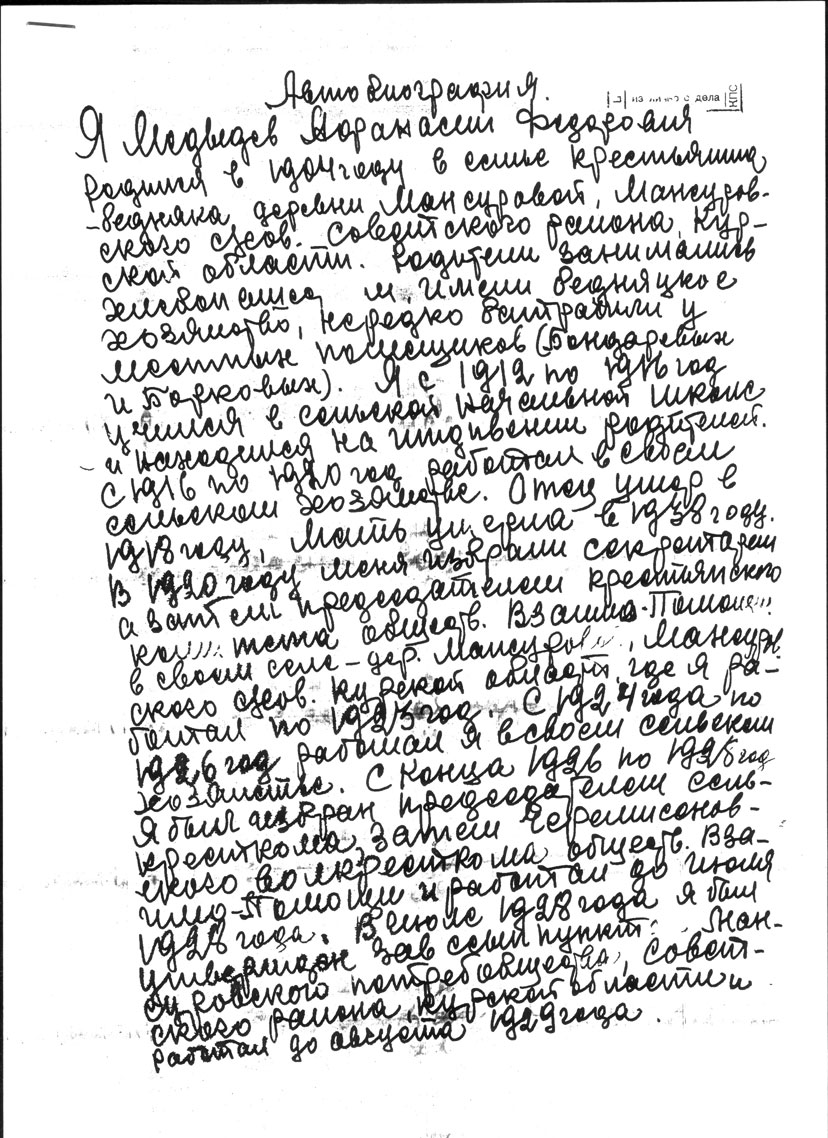 Автобиография.
из личного дела
КПС
Я Медведев Афранасии Федорович
родился в 1904 году в семье крестьянина
-бедняка, деревни Мансуровой, Мансуров-
ского с/сов. Советского района, Кур-
ской области. Родители занимались
хлебопашес и имели бедняцкое
хозяйство, нередко батрачили у
местных помещиков (Бондаревых
и Борковых). Я с 1912 по 1916 год
учился в сельской начальной школе
и находился на иждивении родителей.
С 1916 по 1920 год работал в своем
сельском хозяйстве. Отец умер в
1918 году, мать умерла в 1938 году.
В 1920 году меня избрали секретарем
а затем председателем крестьянского
комитета обществ. Взаимо-Помощи
в своем селе-дер. Мансурово, Мансуров
ского с/сов. Курской области, где я ра-
ботал по 1923 год. С 1924 года по
1926 год работал я в своем сельском
хозяйстве. С конца 1926 по 1928 год
я был избран председателем сель-
кресткома, затем Черемисонов-
ского волкресткома обществ. Вза-
имо-Помощи и работал до июля
1928 года. В июле 1928 года я был
утвержден зав ссыппункт. Ман-
суровского потребобщества, Совет-
ского района, Курской области и
работал до августа 1929 года.